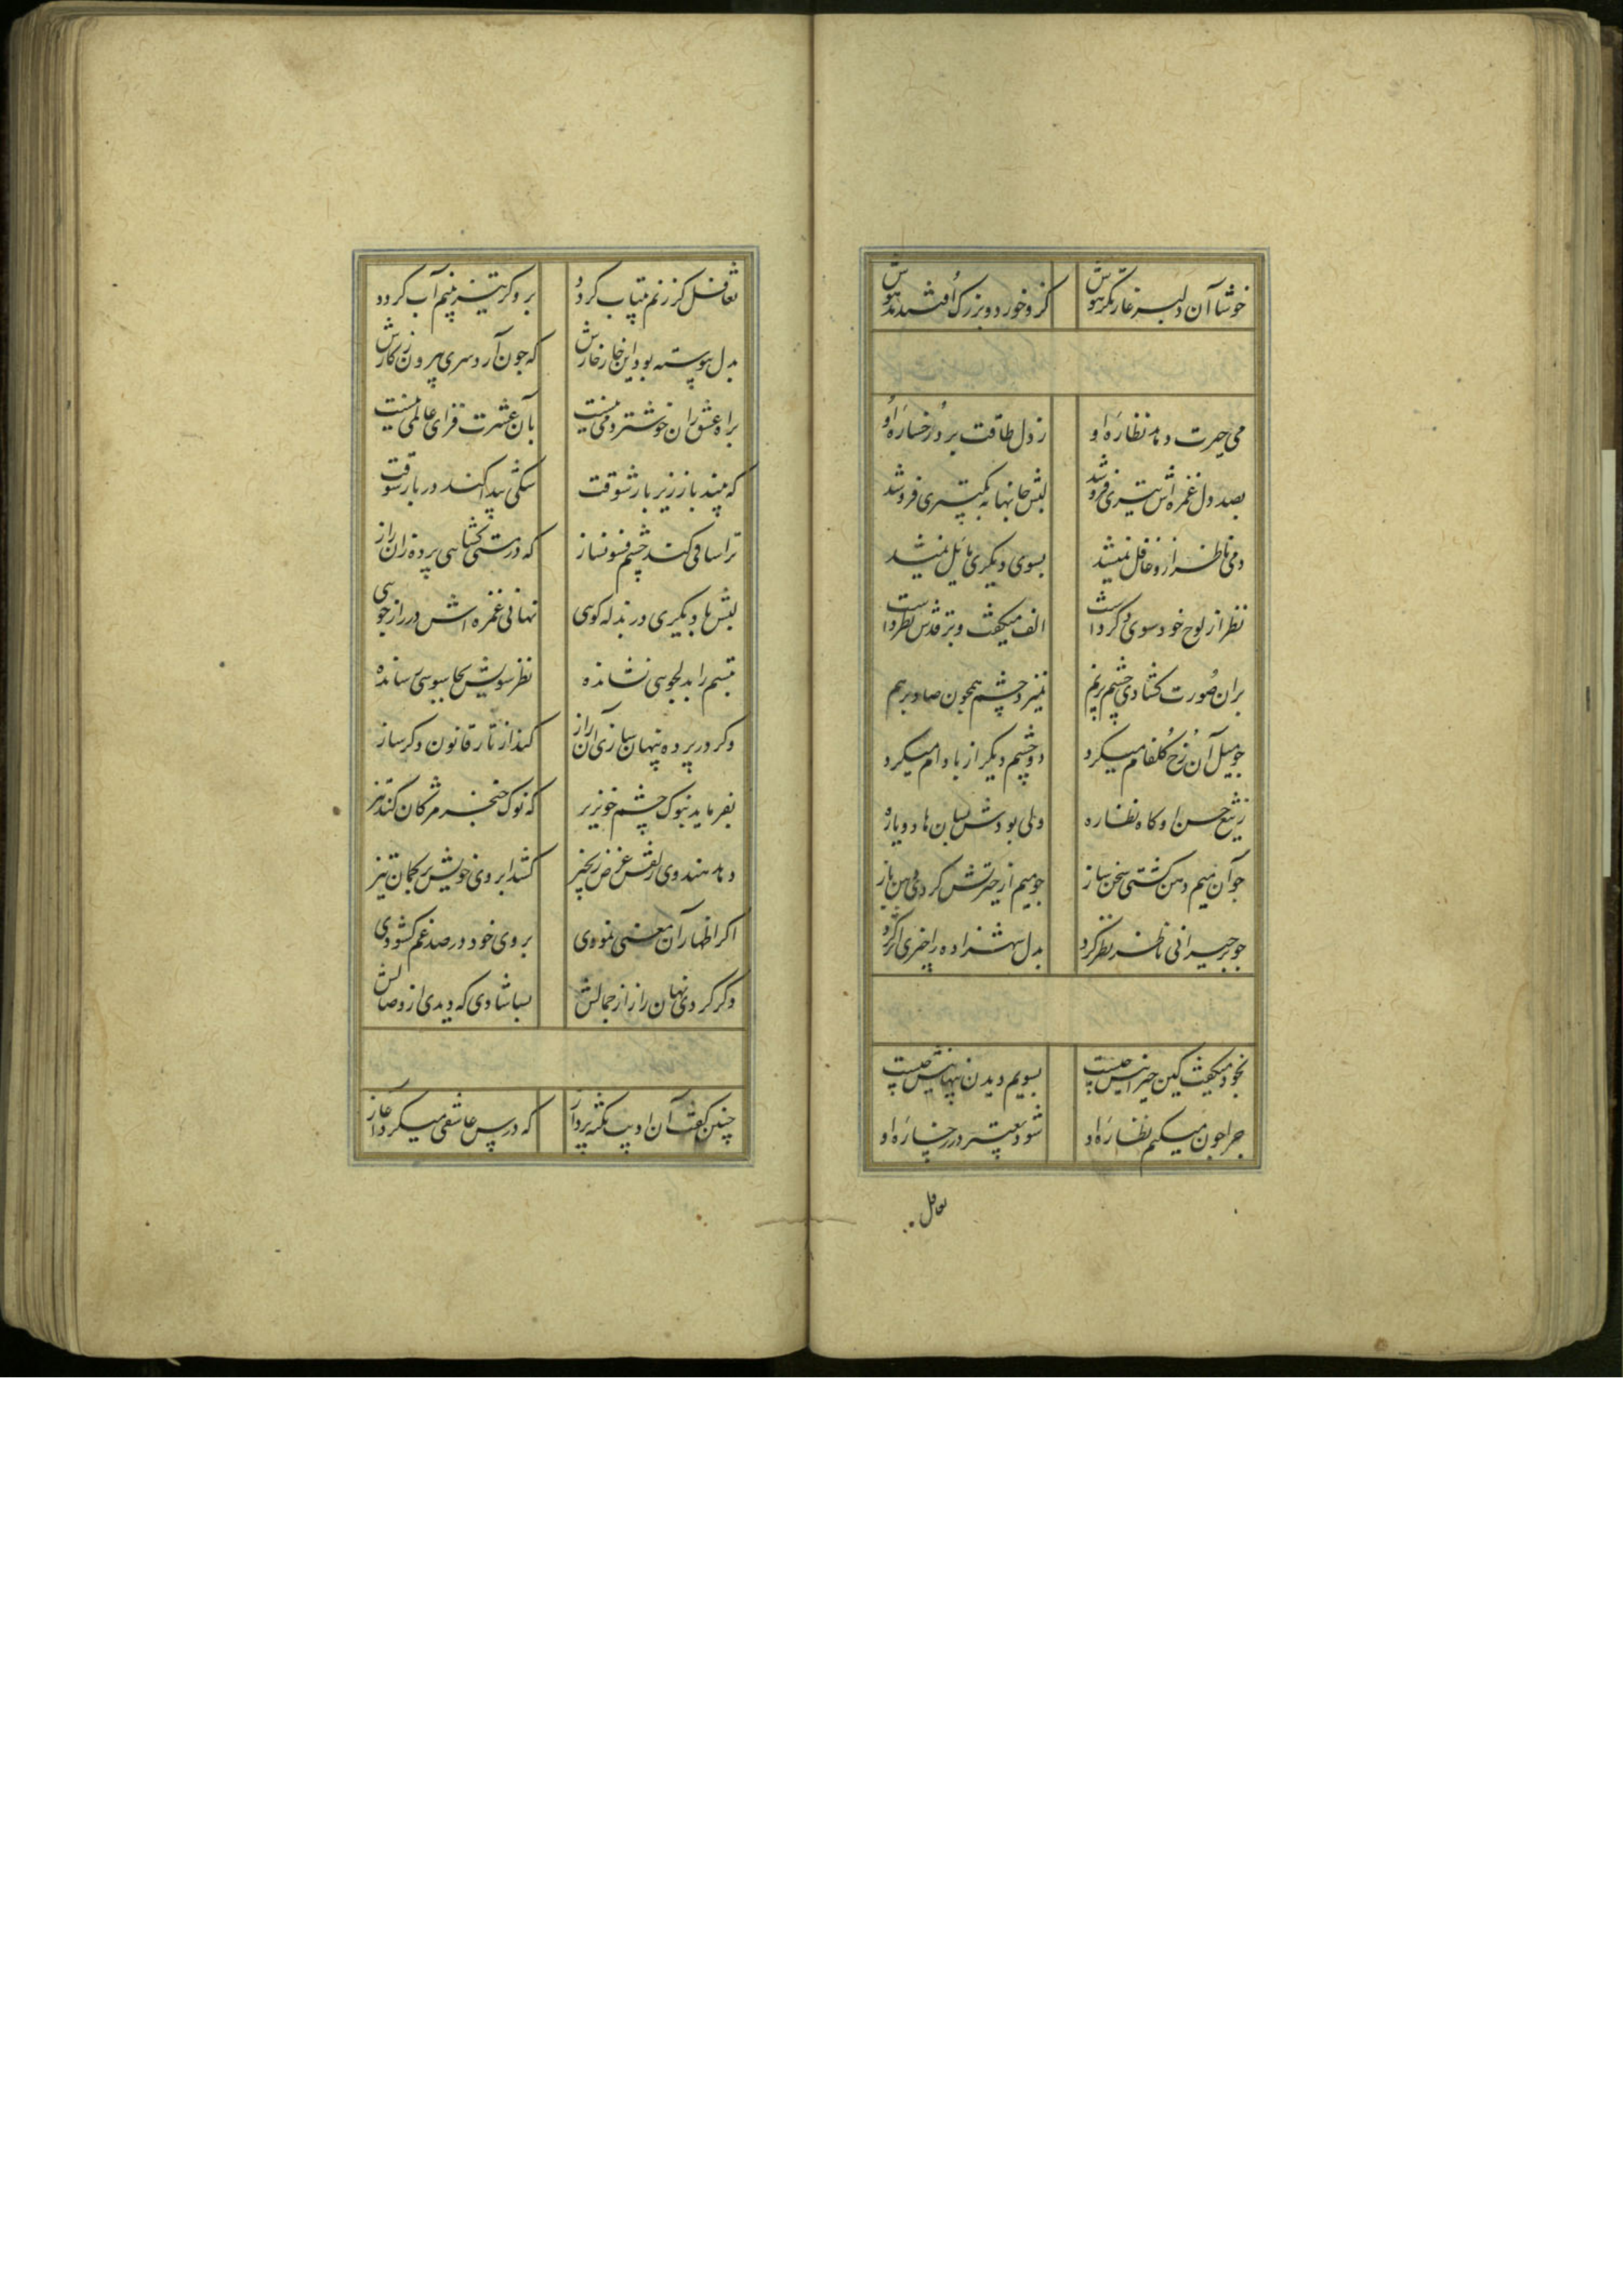 خوشا آن دلبر غارتگر هوش کزو خورد و بزرگ افتند مدهوش
می حیرت دهد نظاره او ز دل طاقت برد رخساره او
بصد دل غمزه اش تیری فروشد لبش جانها به کمتر می فروشد
دمی ناظر ازو غافل نمیشد بسوی دیگری مایل نمیشد
نظر از لوح خود سوی دکر داشت الف میکفت و بر قدش نظر داشت
بران صورت کشادی چشم پرنم نمیزد چشم همچون صاد بر هم
جو میل آن رخ کلفام میکرد دو چشم دیکر از بادام میکرد
ز تیغ حسن او کاه نظاره دلی بودش بسان ها دو پاره
جو آن میم دهن کشتی سخن ساز جو میم از حیرتش کردی دهن باز
جو بر حیرانی ناظر نظر کرد بدل شهزاده را چیزی اثر کرد
بخود میکفت کین حیرانیش چیست بسویم دیدن پنهانیش چیست
چرا چون میکنم نظاره او شود تغییر در رخساره او
تغافل
تغافل کر زنم بیتاب کردد بر و کر تیز بینم آب کردد
بدل پیوسته بود این خار خارش که چون آرد سری بیرون ز کارش
براه عشق ازان خوشتر دمی نیست بآن عشرت فزای عالمی نیست
که بیند باز زیر بار شوقت شکی پیدا کند در بار شوقت
ترا ساقی کند چشم فسونساز که در مستی کشایی پرده زان راز
لبش با دیکری در بذله کویی نهانی غمزه اش در راز جویی
تبسم را بدلجویی نشانده نظر سویش بجاسوسی رسانده
و کر در پرده پنهان سازی آن راز کند از تار قانون دکر ساز
بفرماید بنوک چشم خونریز که نوک خنجر مژکان کند تیز
دهد هندوی زلفش عرض زنجیر کشد ابروی خویش بر کمان تیر
اکر اظهار آن معنی نمودی بروی خود در صد غم کشودی
و کر کردی نهان راز از جمالش بسا شادی که دیدی از وصالش
چنین کفت آن ادیب نکته پرداز که درس عاشقی میکرد آغاز